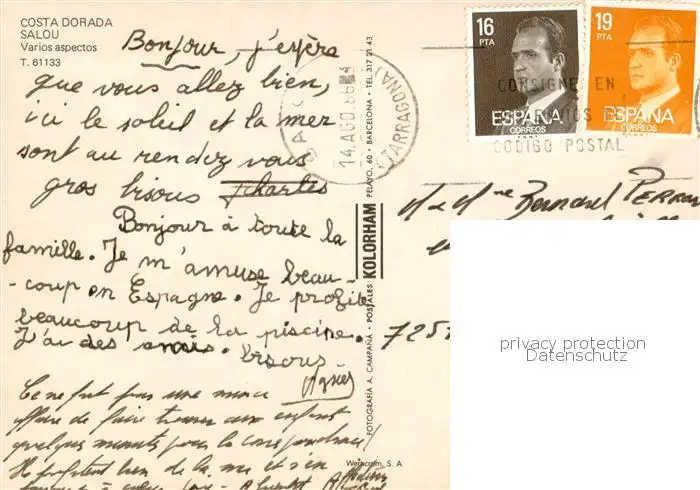 COSTA DORADA
SALOU
Varios aspectos
T. 61133
Bonjour, j'espère
que vous allez bien,
ici le soleil et la mer
sont au rendez vous
gros bisous Charles
Bonjour à toute la
famille. Je m'amuse beau-
-coup en Espagne. Je profite
beaucoup de la piscine.
J'ai des amis. bisous
Agnès
Ce ne fut pas une mince
affaire de faire trouver aux enfants
quelques minutes pour la correspondance!
Ils profitent bien de la mer et s'en
A bientôt
FOTOGRAFIA A. CAMPAÑA - POSTALES KOLORHAM PELAYO, 60 - BARCELONA - TEL. 317 21 43
Werncrom, S. A.
14.AGO.86
(TARRAGONA)
16
PTA
ESPAÑA
CORREOS
19
PTA
ESPAÑA
CORREOS
CONSIGNE EN
CODIGO POSTAL
M et Mme Bernard
725
privacy protection
Datenschutz